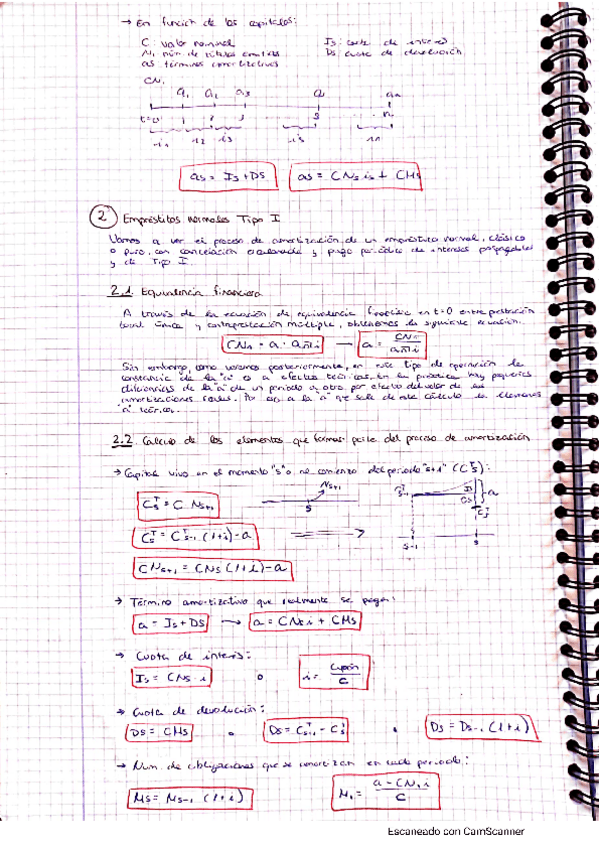 → En función de los capitales:
C: valor nominal    Is: cuota de interés
N: núm de títulos emitidos    Ds: cuota de devolución
as: términos amortizativos
CN₁
a₁ a₂ a₃ as an
t=0 1 2 3 s n
i₁ i₂ i₃ is in
as = Is + Ds    as = CNs is + CMs
2 Empréstitos normales Tipo I
Vamos a ver el proceso de amortización de un empréstito normal, clásico
o puro, con cancelación escalonada y pago periódico de intereses pospagables
y de Tipo I.
2.1. Equivalencia financiera
A través de la ecuación de equivalencia financiera en t=0 entre prestación
única y contraprestación múltiple, obtenemos la siguiente ecuación.
CN₁ = a · an̅|i → a = CN₁ / an̅|i
Sin embargo, como veremos posteriormente, en este tipo de operación de
constancia de la "a" es a efectos teóricos. En la práctica hay pequeñas
diferencias de la "a" de un periodo a otro, por efecto del valor de las
amortizaciones reales. Por eso a la "a" que sale de este cálculo la llamamos
"a" teórico.
2.2. Calculo de los elementos que forman parte del proceso de amortización
→ Capital vivo en el momento "s" o al comienzo del periodo "s+1" (Cs):
Cs = C Ns+1
Ns+1
s
Cs = Cs-1 (1+i) - a
CNs+1 = CNs (1+i) - a
Cs-1 Is Ds a Cs
s-1 s
→ Término amortizativo que realmente se paga:
a = Is + Ds → a = CNs i + CMs
→ Cuota de interés:
Is = CNs · i    o    i = Cupón / C
→ Cuota de devolución:
Ds = CMs    o    Ds = Cs-1 - Cs    o    Ds = Ds-1 (1+i)
→ Num. de obligaciones que se amortizan en cada periodo:
Ms = Ms-1 (1+i)    M₁ = a - CN₁ i / C
Escaneado con CamScanner